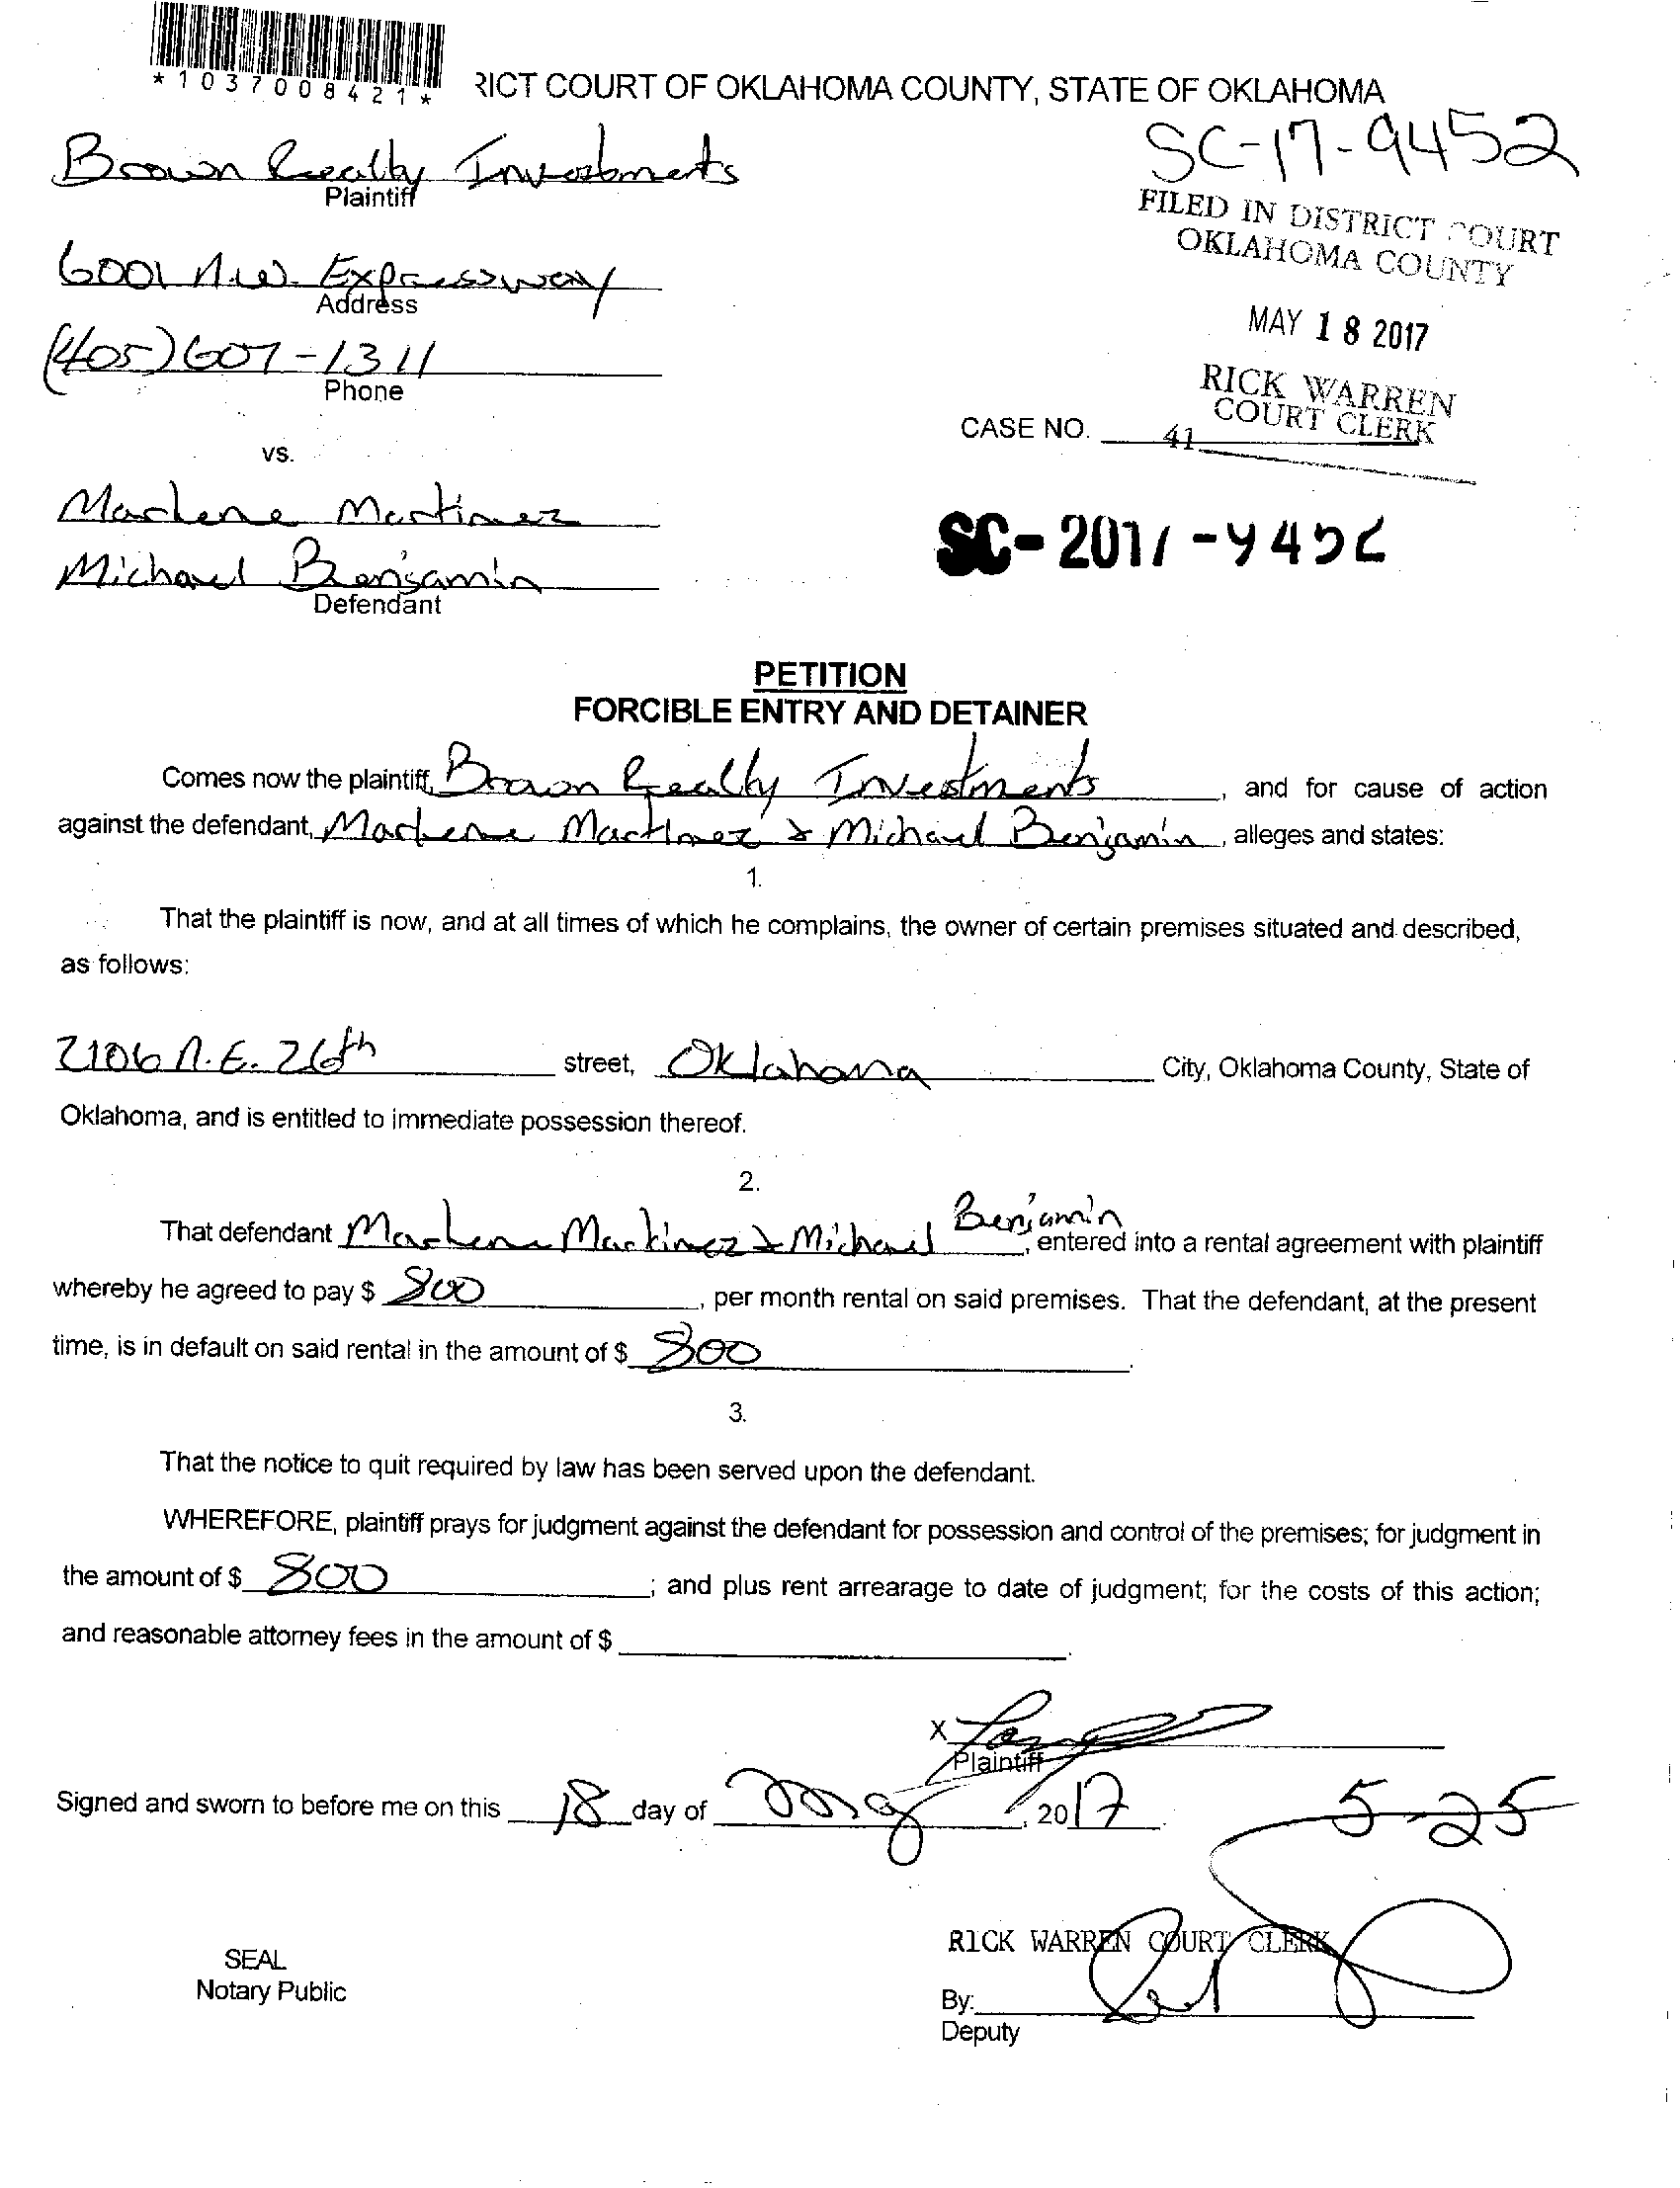 *1037008421*
RICT COURT OF OKLAHOMA COUNTY, STATE OF OKLAHOMA
SC-17-9452
Brown Realty Investments
Plaintiff
FILED IN DISTRICT COURT
OKLAHOMA COUNTY
6001 N.W. Expressway
Address
MAY 18 2017
(405) 607-1311
Phone
RICK WARREN
COURT CLERK
CASE NO.
41
vs.
Marlene Martinez
SC-2017-9452
Michael Benjamin
Defendant
PETITION
FORCIBLE ENTRY AND DETAINER
Comes now the plaintiff, Brown Realty Investments, and for cause of action
against the defendant, Marlene Martinez & Michael Benjamin, alleges and states:
1.
That the plaintiff is now, and at all times of which he complains, the owner of certain premises situated and described,
as follows:
2106 N.E. 26th street, Oklahoma City, Oklahoma County, State of
Oklahoma, and is entitled to immediate possession thereof.
2.
That defendant Marlene Martinez & Michael Benjamin, entered into a rental agreement with plaintiff
whereby he agreed to pay $ 800, per month rental on said premises. That the defendant, at the present
time, is in default on said rental in the amount of $ 800.
3.
That the notice to quit required by law has been served upon the defendant.
WHEREFORE, plaintiff prays for judgment against the defendant for possession and control of the premises; for judgment in
the amount of $ 800; and plus rent arrearage to date of judgment; for the costs of this action;
and reasonable attorney fees in the amount of $.
X
Plaintiff
Signed and sworn to before me on this 18 day of May, 2017
5-25
RICK WARREN COURT CLERK
SEAL
Notary Public
By:
Deputy